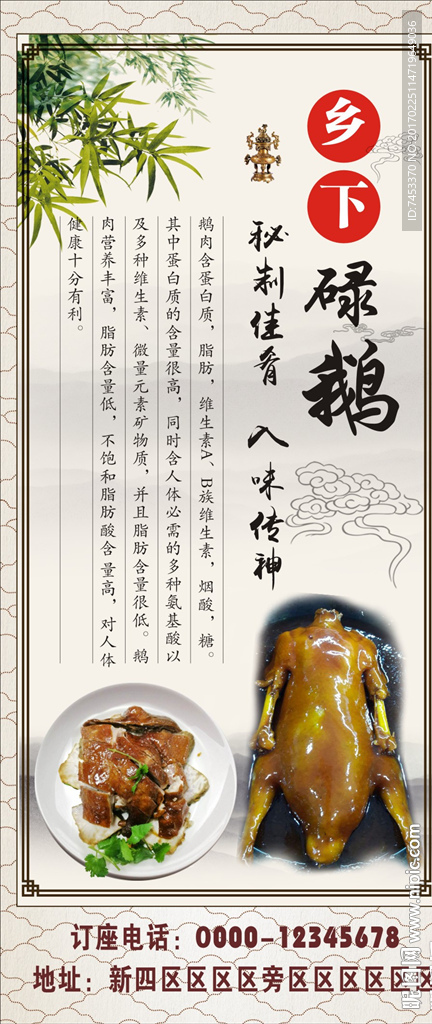 乡下
碌鹅
秘制佳肴 入味传神
鹅肉含蛋白质，脂肪，维生素A、B族维生素，烟酸，糖。
其中蛋白质的含量很高，同时含人体必需的多种氨基酸以
及多种维生素、微量元素矿物质，并且脂肪含量很低。鹅
肉营养丰富，脂肪含量低，不饱和脂肪酸含量高，对人体
健康十分有利。
订座电话：0000-12345678
地址：新四区区区区旁区区区区区区
ID:7453370 NO:20170225114719649036
昵图网 www.nipic.com